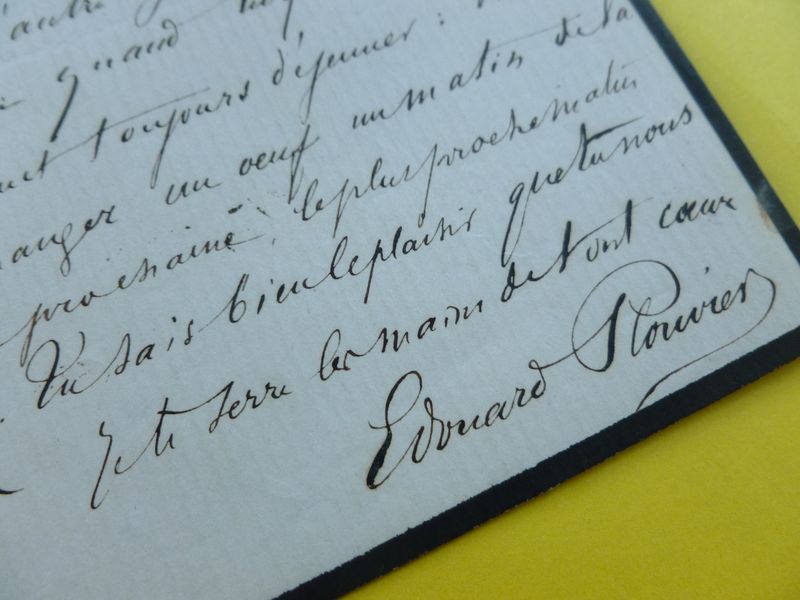 quand
toujours déjeuner :
manger un oeuf un matin de la
prochaine, le plus proche matin
Tu sais bien le plaisir que tu nous
Je te serre les mains de tout coeur
Edouard Plouvier